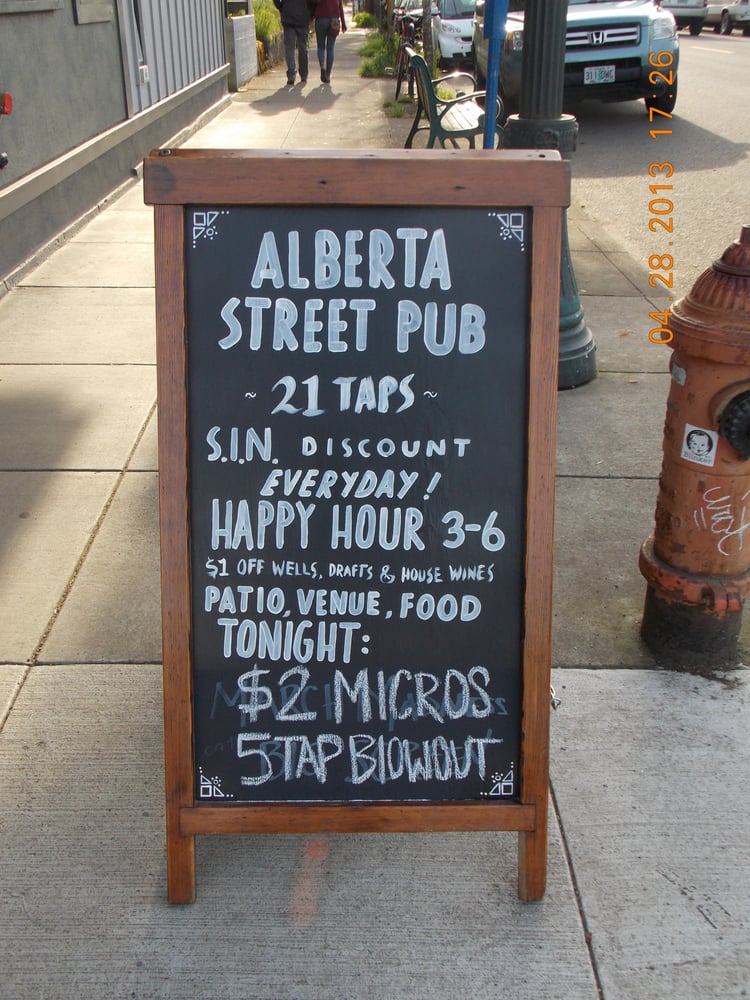 ALBERTA
STREET PUB
~ 21 TAPS ~
S.I.N. DISCOUNT
EVERYDAY!
HAPPY HOUR 3-6
$1 OFF WELLS, DRAFTS & HOUSE WINES
PATIO, VENUE, FOOD
TONIGHT:
$2 MICROS
5 TAP BLOWOUT
04.28.2013 17:26